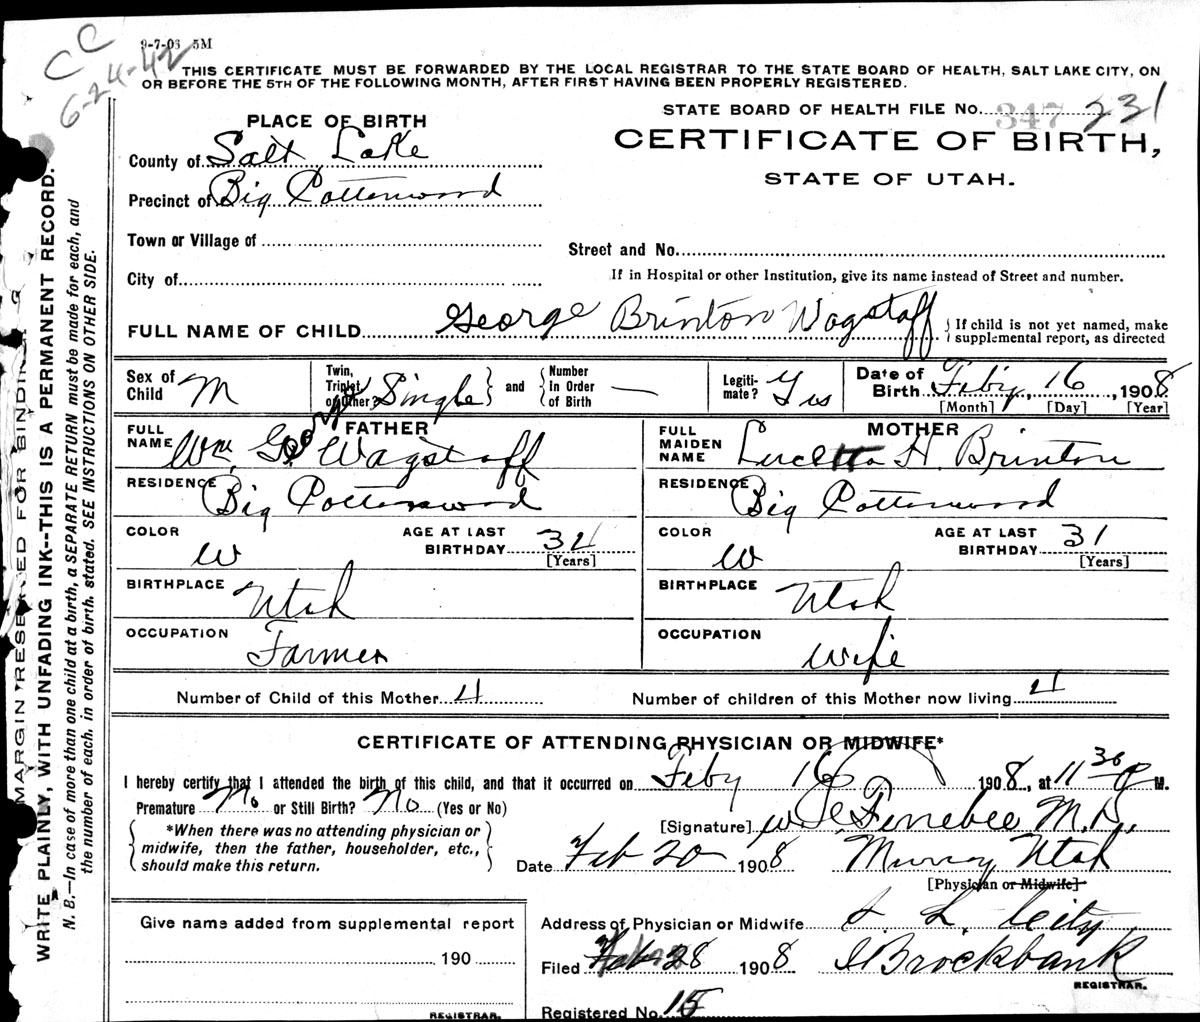 CC
6-24-42
9-7-03 5M
THIS CERTIFICATE MUST BE FORWARDED BY THE LOCAL REGISTRAR TO THE STATE BOARD OF HEALTH, SALT LAKE CITY, ON
OR BEFORE THE 5TH OF THE FOLLOWING MONTH, AFTER FIRST HAVING BEEN PROPERLY REGISTERED.
STATE BOARD OF HEALTH FILE No. 347 231
CERTIFICATE OF BIRTH,
STATE OF UTAH.
PLACE OF BIRTH
County of Salt Lake
Precinct of Big Cottonwood
Town or Village of
Street and No.
City of
If in Hospital or other Institution, give its name instead of Street and number.
FULL NAME OF CHILD George Brinton Wagstaff { If child is not yet named, make
supplemental report, as directed
Sex of Child M
Twin, Triplet or Other? Single } and { Number In Order of Birth —
Legiti-mate? Yes
Date of Birth Feby, 16, 1908
[Month] [Day] [Year]
FATHER
FULL NAME Wm. Geo Wagstaff
MOTHER
FULL MAIDEN NAME Lucetta H. Brinton
RESIDENCE Big Cottonwood
RESIDENCE Big Cottonwood
COLOR W AGE AT LAST BIRTHDAY 34 [Years]
COLOR W AGE AT LAST BIRTHDAY 31 [Years]
BIRTHPLACE Utah
BIRTHPLACE Utah
OCCUPATION Farmer
OCCUPATION Wife
Number of Child of this Mother 4 Number of children of this Mother now living 4
CERTIFICATE OF ATTENDING PHYSICIAN OR MIDWIFE*
I hereby certify that I attended the birth of this child, and that it occurred on Feby 16 1908, at 11 30 P M.
Premature No or Still Birth? No (Yes or No)
{ *When there was no attending physician or
midwife, then the father, householder, etc.,
should make this return. }
[Signature] Ferrebee M.D.
Date Feb 20 1908 Murray Utah
[Physician or Midwife]
Give name added from supplemental report
190
REGISTRAR.
Address of Physician or Midwife S. L. City
Filed Feb 28 1908 Brockbank
REGISTRAR.
Registered No. 15
MARGIN RESERVED FOR BINDING
WRITE PLAINLY, WITH UNFADING INK--THIS IS A PERMANENT RECORD.
N. B.—In case of more than one child at a birth, a SEPARATE RETURN must be made for each, and
the number of each, in order of birth, stated. SEE INSTRUCTIONS ON OTHER SIDE.